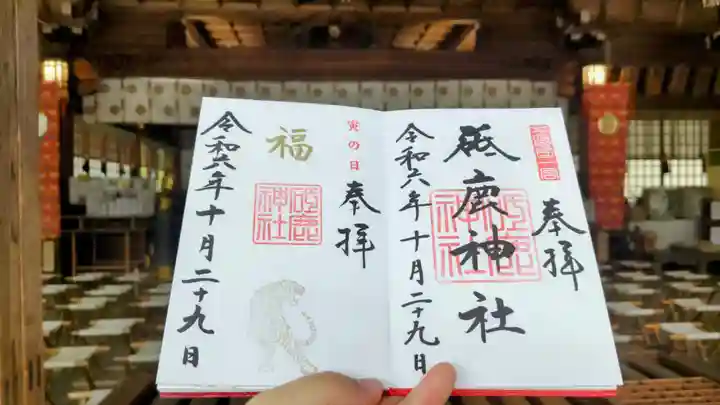 奉拝
砥鹿神社
令和六年十月二十九日
砥鹿神社
寅の日
奉拝
福
砥鹿神社
令和六年十月二十九日